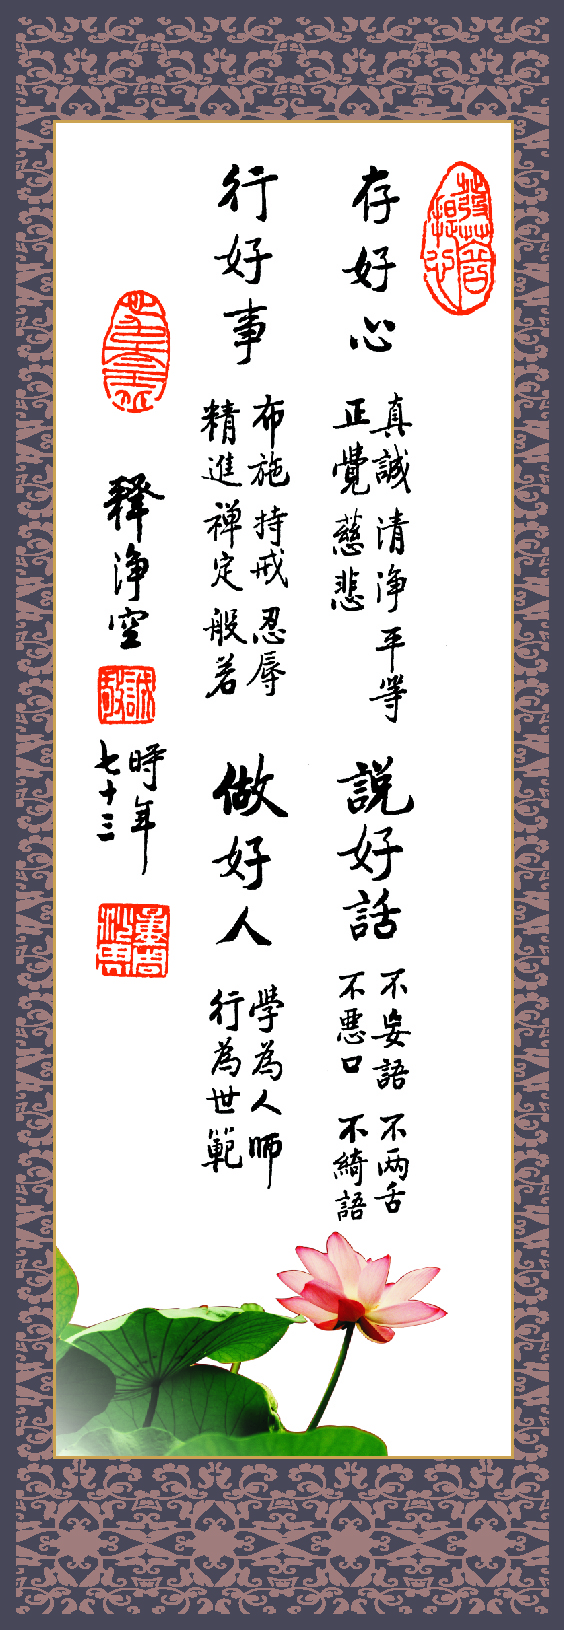 存好心
真誠 清净 平等
正覺 慈悲
說好話
不妄語 不两舌
不惡口 不綺語
行好事
布施 持戒 忍辱
精進 禅定 般若
做好人
學為人師
行為世範
釋净空
時年
七十三